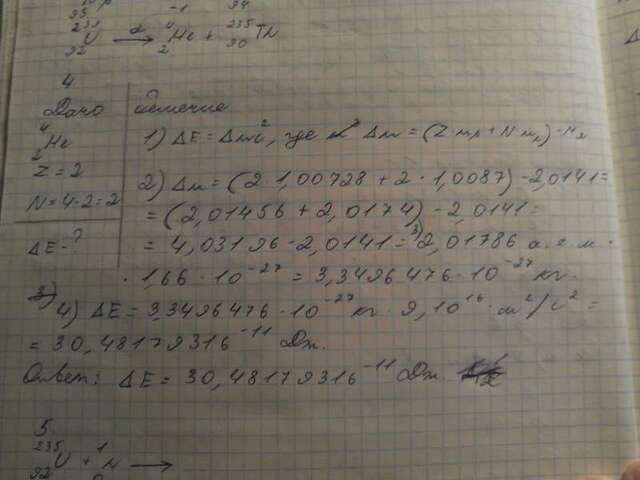 -1 94
239 92 U →α 4 2 He + 235 90 Th
4
Дано
Решение
4 2 He
Z = 2
N = 4-2=2
ΔE-?
1) ΔE = Δmc², где Δm = (Z mp + N mn) - Mя
2) Δm = (2·1,00728 + 2·1,0087) - 2,0141=
= (2,01456 + 2,0174) - 2,0141=
= 4,03196 - 2,0141 = 3) 2,01786 а.е.м.
· 1,66 · 10⁻²⁷ = 3,3496476 · 10⁻²⁷ кг.
4) ΔE = 3,3496476 · 10⁻²⁷ кг · 9, 10¹⁶ · м²/с² =
= 30,48179316⁻¹¹ Дж.
Ответ: ΔE = 30,48179316⁻¹¹ Дж.
5.
235 92 U + 1 0 N →